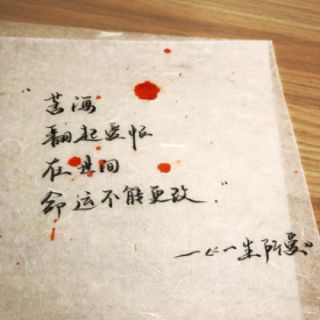 “苦海
翻起爱恨
在世间
命运不能更改.”
—《一生所爱》